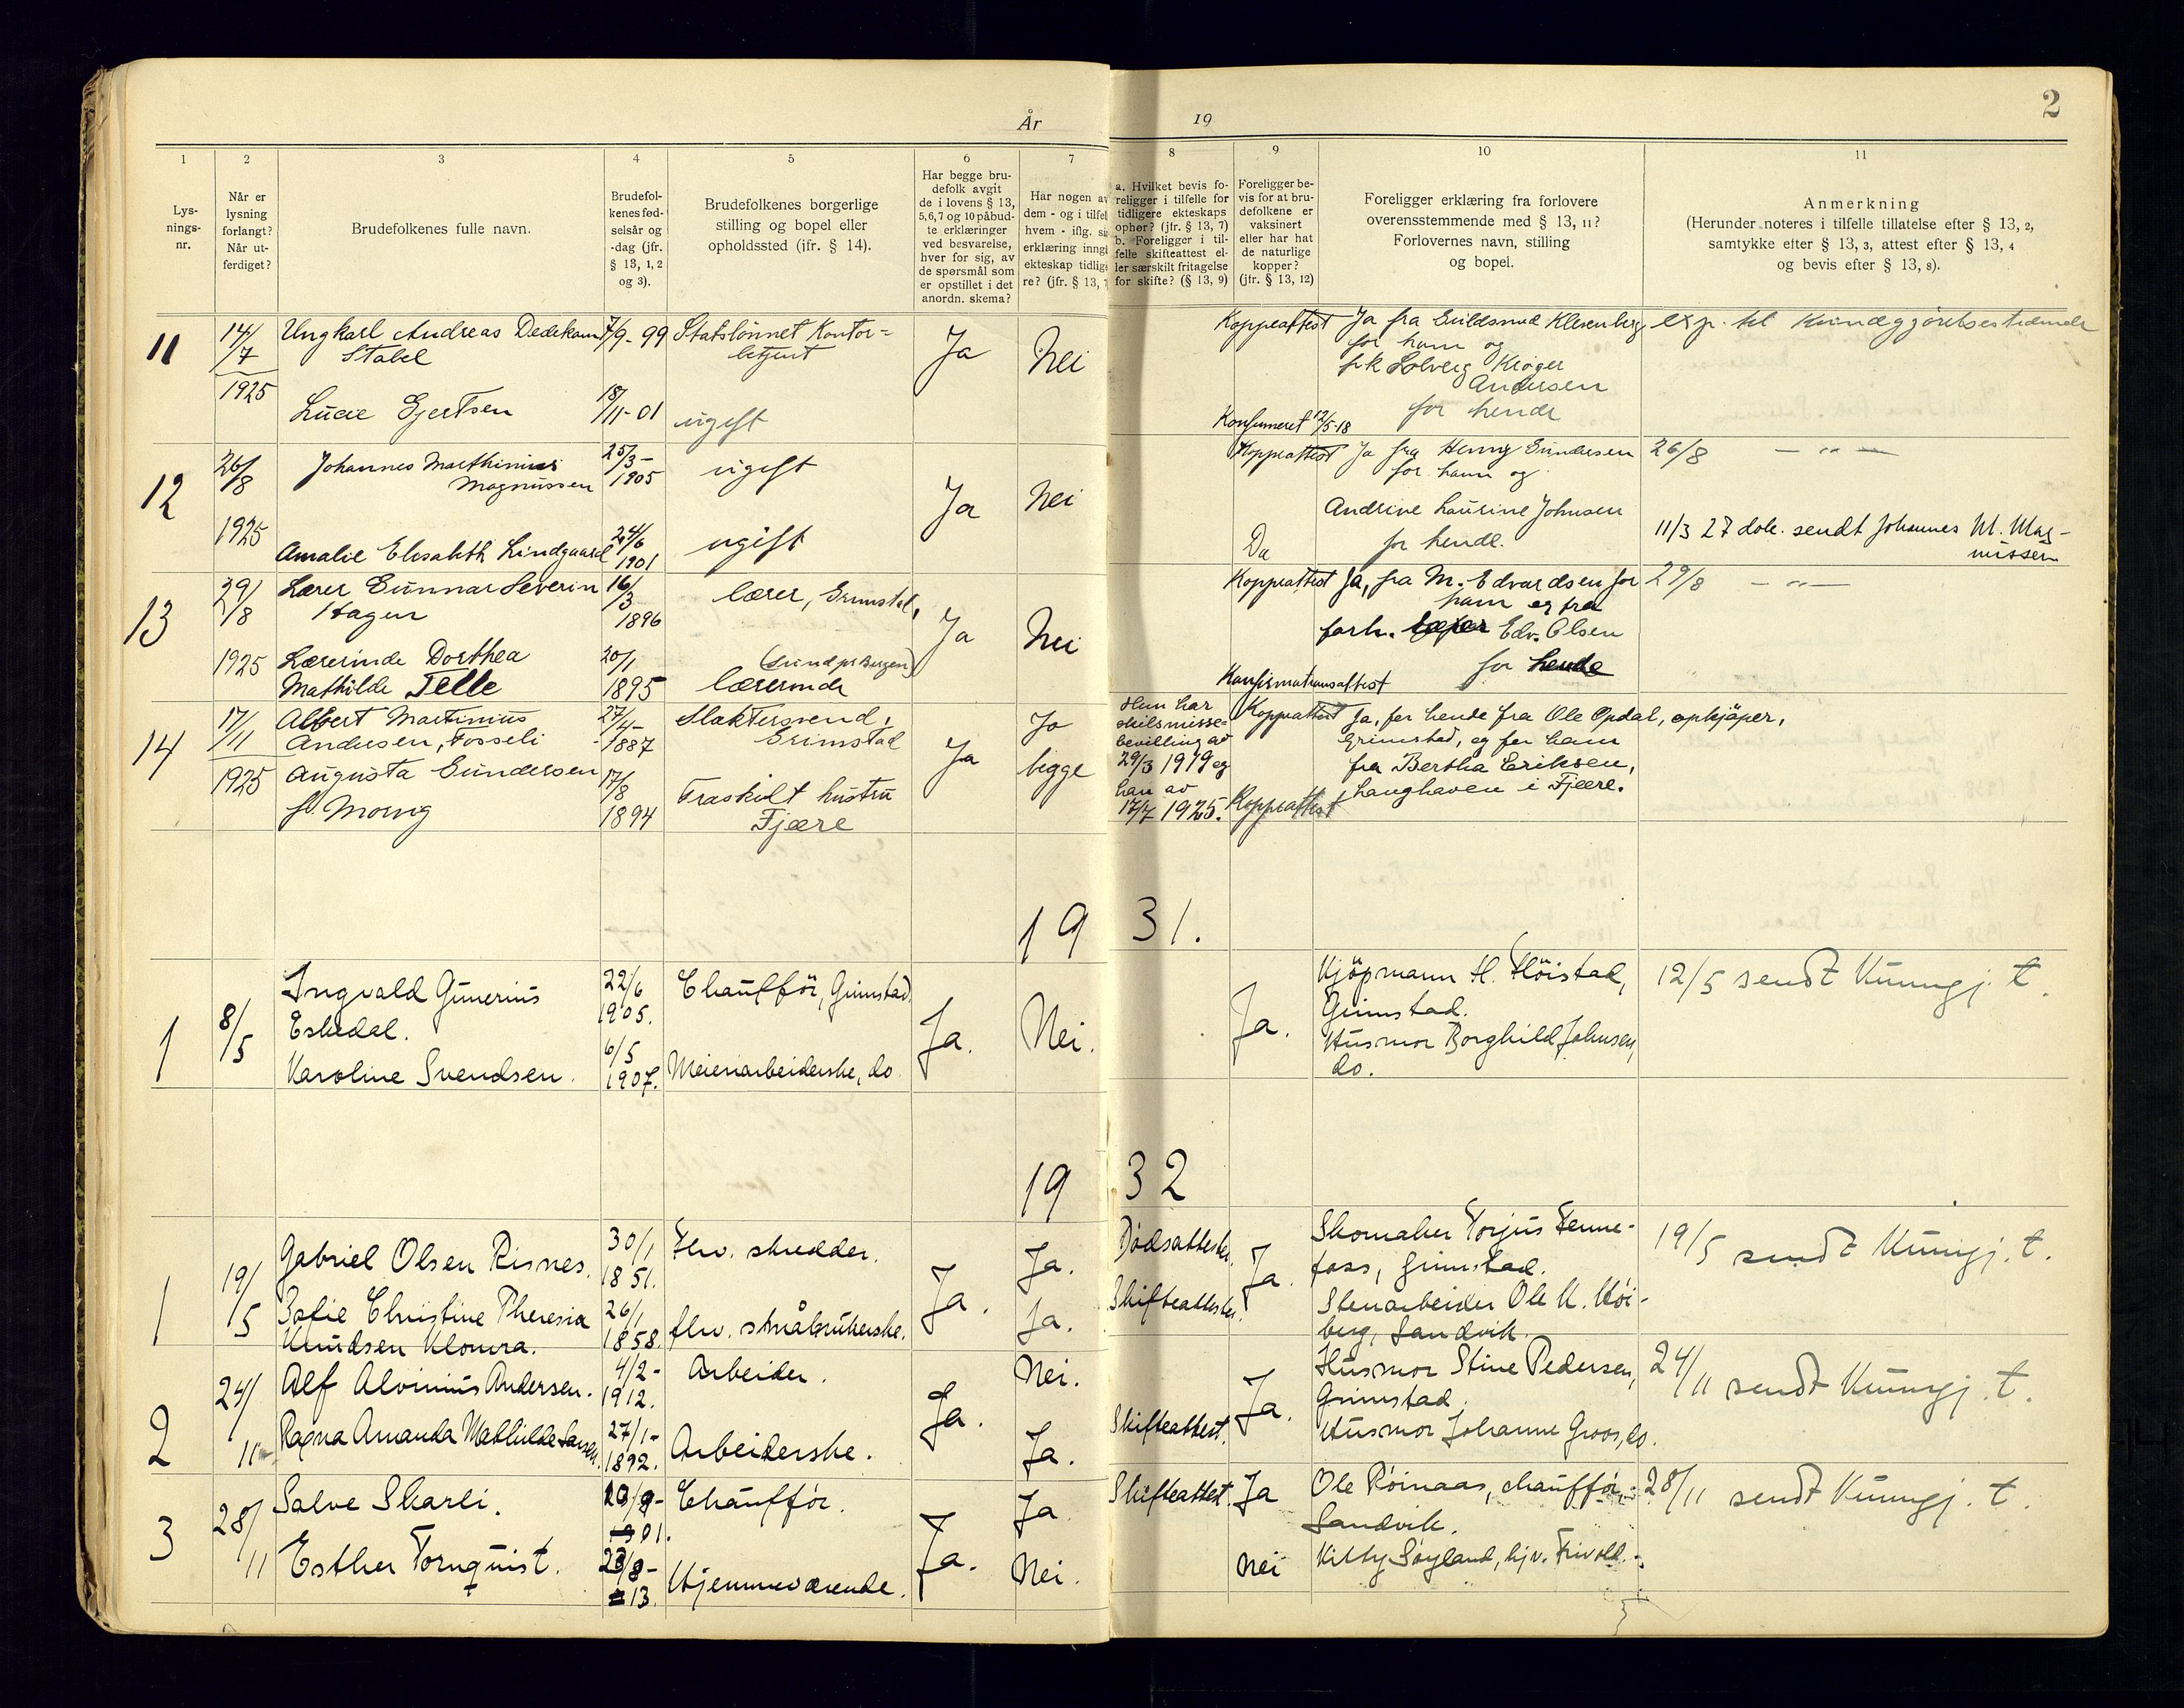 År 19
2
1 2 3 4 5 6 7 8 9 10 11
Lys-
nings-
nr.
Når er
lysning
forlangt?
Når ut-
ferdiget?
Brudefolkenes fulle navn.
Brudefol-
kenes fød-
selsår og
-dag (jfr.
§ 13, 1, 2
og 3).
Brudefolkenes borgerlige
stilling og bopel eller
opholdssted (jfr. § 14).
Har begge bru-
defolk avgit
de i lovens § 13,
5, 6, 7 og 10 påbud-
te erklæringer
ved besvarelse,
hver for sig, av
de spørsmål som
er opstillet i det
anordn. skema?
Har nogen av
dem - og i tilfel
hvem - iflg. si
erklæring inng
ekteskap tidlig
re? (jfr. § 13, 7
a. Hvilket bevis fo-
religger i tilfelle for
tidligere ekteskaps
ophør? (jfr. § 13, 7)
b. Foreligger i til-
felle skifteattest el-
ler særskilt fritagelse
for skifte? (§ 13, 9)
Foreligger be-
vis for at bru-
defolkene er
vaksinert
eller har hat
de naturlige
kopper?
(jfr. § 13, 12)
Foreligger erklæring fra forlovere
overensstemmende med § 13, 11?
Forlovernes navn, stilling
og bopel.
Anmerkning
(Herunder noteres i tilfelle tillatelse efter § 13, 2,
samtykke efter § 13, 3, attest efter § 13, 4
og bevis efter § 13, 8).
11
14/7
1925
Ungkarl Andreas Dedekam
Stabel
7/9-99
Statslønnet Kontor-
betjent
Lucie Gjertsen
18/11-01
ugift
Ja
Nei
Koppeattest
Konfirmeret 12/5-18
Ja fra Guldsmed Klesenberg
for ham og
frk Solveig Krøger
Andersen
for hende
exp. til Kundgjørelsestidende
12
26/8
1925
Johannes Marthinius
Magnussen
25/3-
1905
ugift
Amalie Elisabeth Lindgaard
24/6
1901
ugift
Ja
Nei
Koppeattest
Do
Ja fra Henry Gundersen
for ham og
Andrine Laurine Johnsen
for hende.
26/8 — " —
11/3 27 dole. sendt Johannes M. Mag-
nussen
13
29/8
1925
Lærer Gunnar Severin
Hagen
16/3
1896
lærer, Grimstad,
Lærerinde Dorthea
Mathilde Telle
20/1
1895
lærerinde
Ja
Nei
Koppeattest
Konfirmationsattest
Ja, fra M. Edvardsen for
ham og fra
forh. Edv. Olsen
for hende
29/8 — " —
14
17/11
1925
Albert Martinius
Andersen, Fosseli
27/4-
1887
Slaktersvend,
Grimstad
Augusta Gundersen
f.
17/8
1894
Fraskilt hustru
Fjære
Ja
Ja
begge
Hun har
skilsmisse-
bevilling av
29/3 1919 og
han av
17/7 1925.
Koppeattest
Koppeattest
Ja, for hende fra Ole Opdal, opkjøper,
Grimstad, og for ham
fra Bertha Eriksen,
Langhaven i Fjære.
19 31.
1
8/5
Ingvald Gunerius
Eskedal.
22/6
1905.
Chauffør, Grimstad.
Karoline Svendsen.
6/5
1907.
Meieriarbeiderske, do
Ja.
Nei.
Ja.
Kjøpmann H. Høistad,
Grimstad.
Husmor Borghild Johnsen,
do.
12/5 sendt Kunngj. t.
19 32
1
19/5
Gabriel Olsen Risnes.
30/1
1851.
Fhv. skredder.
Sofie Christine Theresia
Knudsen Klovra.
26/1
1858.
fhv. småbrukerske.
Ja.
Ja.
Ja.
Dødsattester.
Skifteattester.
Ja.
Skomaker Torjus Fenne-
foss, Grimstad.
Stenarbeider Ole K. Høi-
berg, Sandvik.
19/5 sendt Kunngj. t.
2
24/11
Alf Alvinius Andersen.
4/2-
1912.
Arbeider.
Ragna Amanda Mathilde Larsen.
27/1-
1892.
Arbeiderske.
Ja.
Nei.
Ja.
Skifteattest.
Ja.
Husmor Stine Pedersen,
Grimstad.
Husmor Johanne Groos, do.
24/11 sendt Kunngj. t.
3
28/11
Salve Skarli.
01.
Chauffør.
Esther Tornquist.
13.
Hjemmeværende.
Ja.
Ja
Nei.
Skifteattest.
Ja
Nei
Ole Røinaas, chauffør,
Sandvik.
Kitty Søyland, hjv. Frivold.
28/11 sendt Kunngj. t.